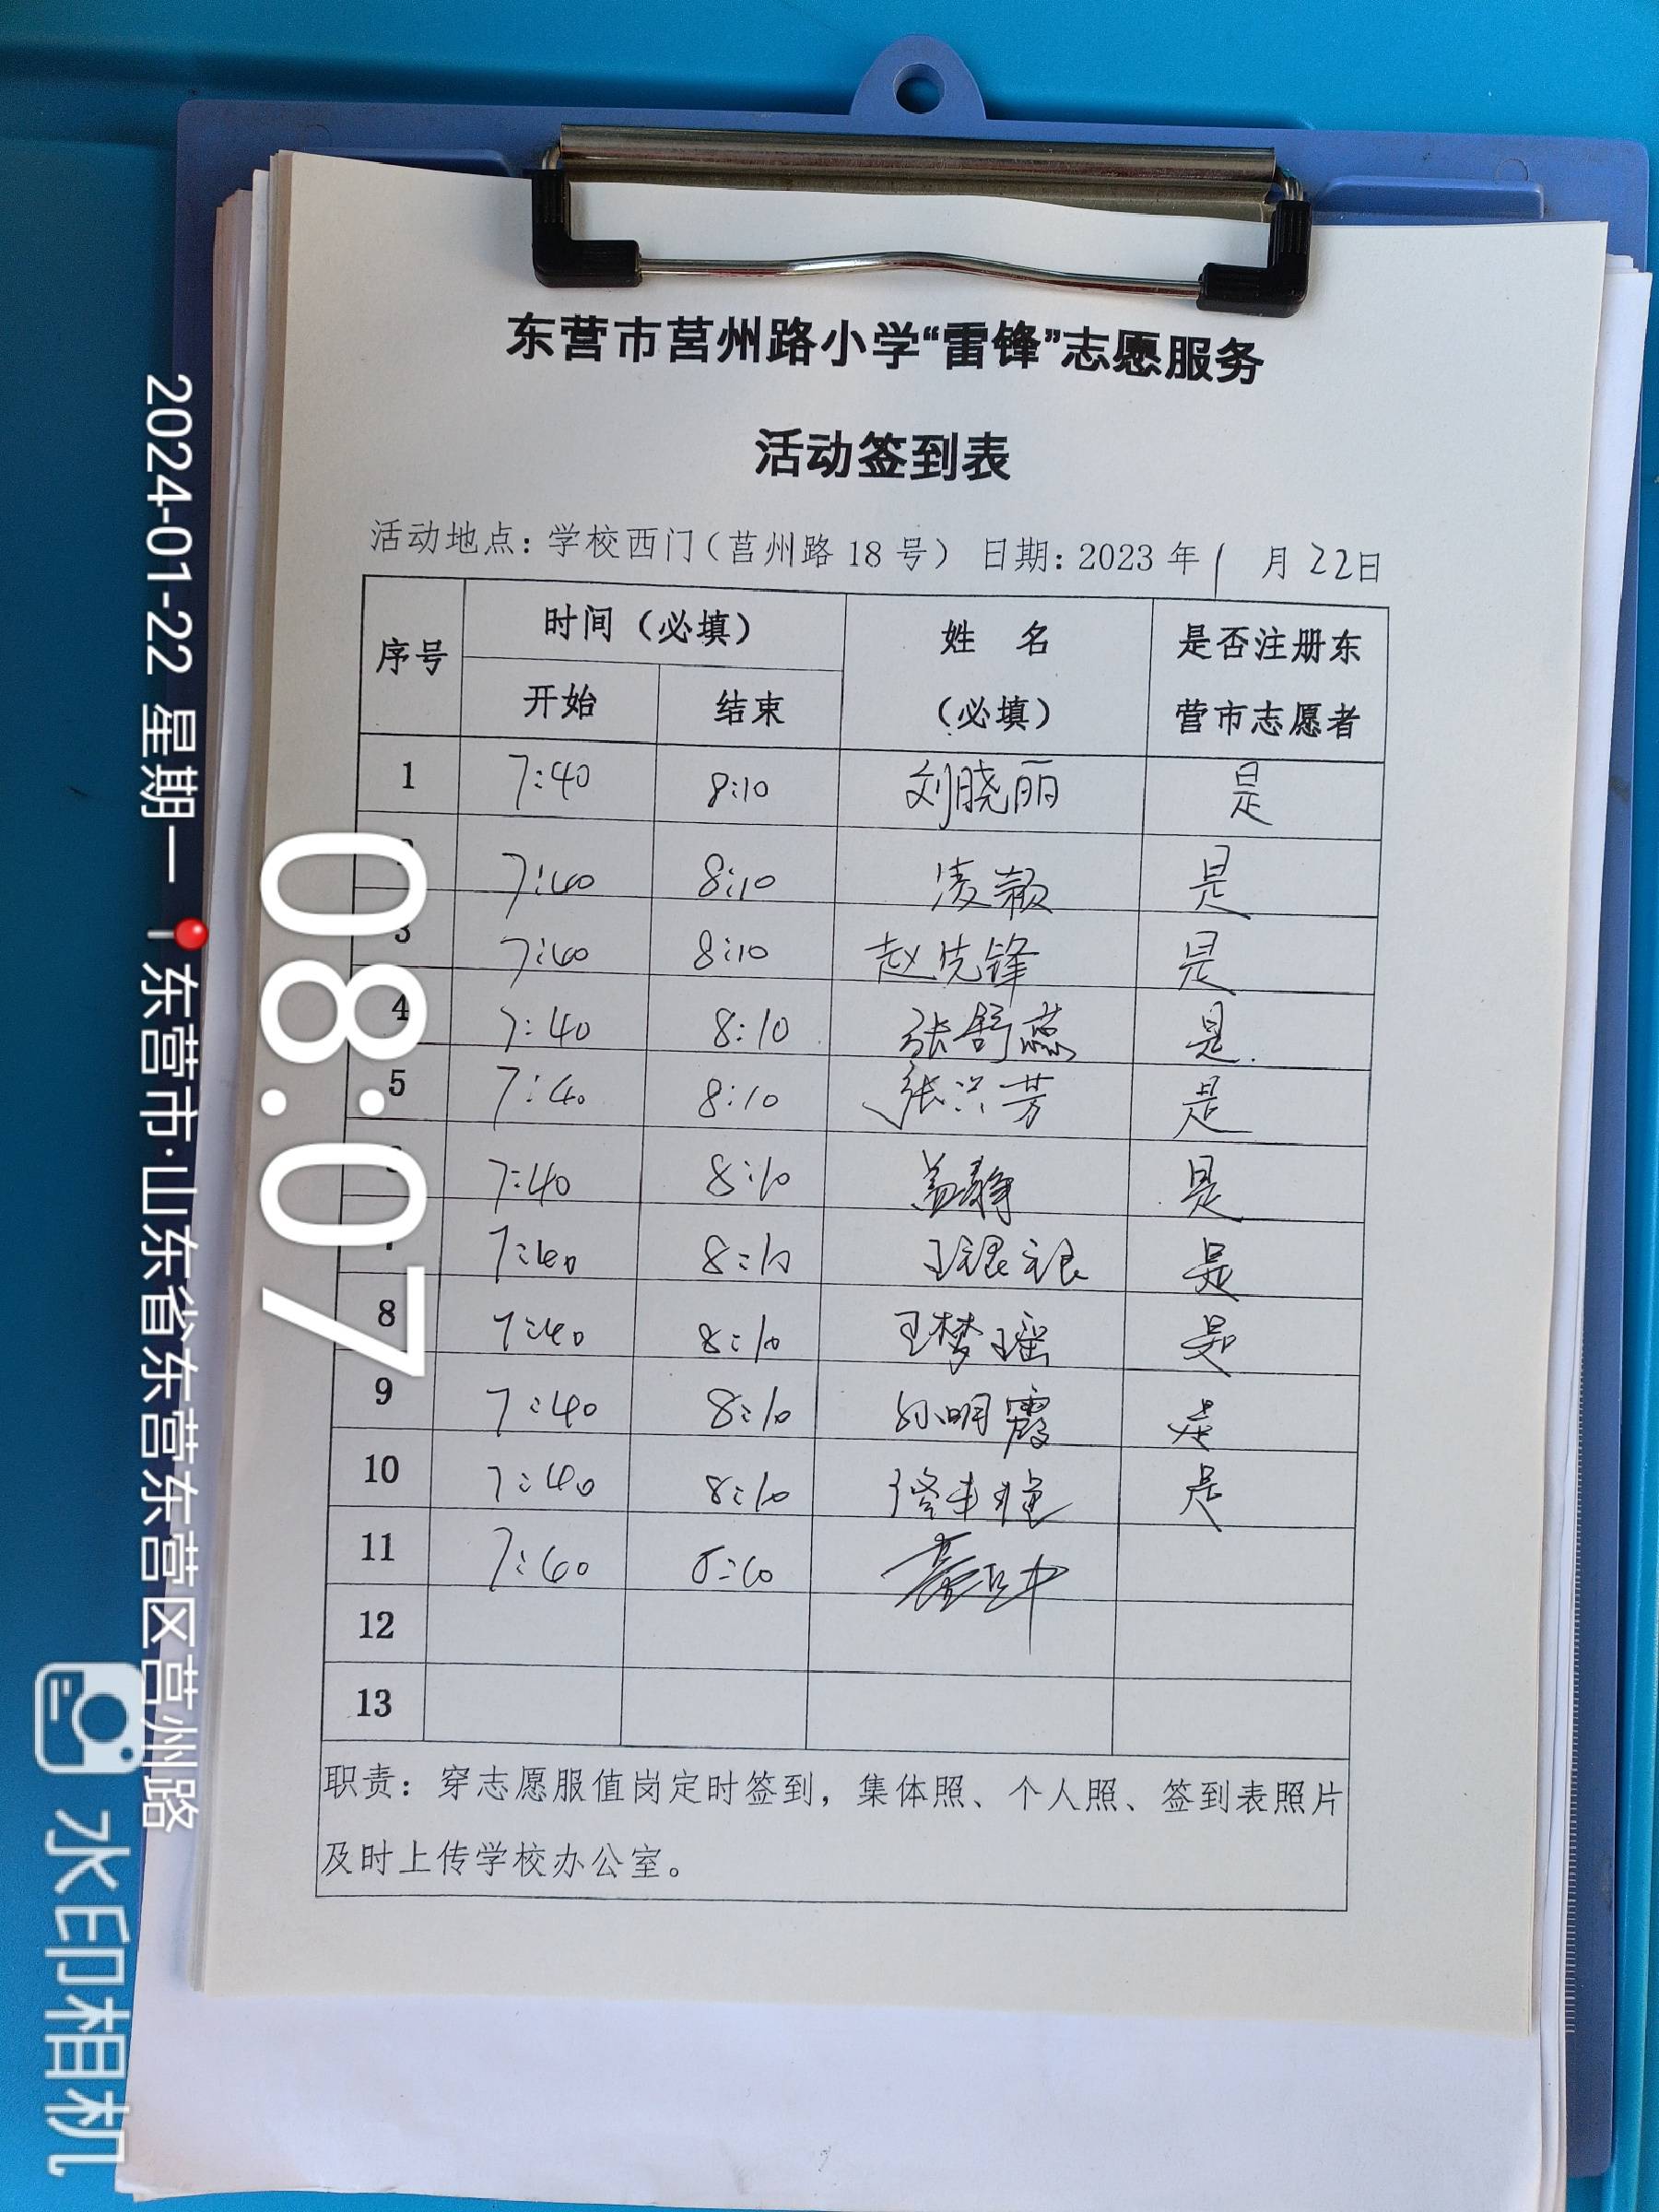 东营市莒州路小学“雷锋”志愿服务
活动签到表
活动地点：学校西门（莒州路 18 号） 日期：2023 年 1 月 22 日
序号 时间（必填） 姓 名（必填） 是否注册东营市志愿者
开始 结束
1 7:40 8:10 刘晓丽 是
7:40 8:10 凌颖 是
3 7:40 8:10 赵先锋 是
4 7:40 8:10 张舒蕊 是
5 7:40 8:10 张兴芳 是
7:40 8:10 盖静 是
7:40 8:10 是
8 7:40 8:10 王梦瑶 是
9 7:40 8:10 孙明霞 是
10 7:40 8:10 是
11 7:40
12
13
职责：穿志愿服值岗定时签到，集体照、个人照、签到表照片
及时上传学校办公室。
08:07
2024-01-22 星期一 东营市·山东省东营东营区莒州路
水印相机